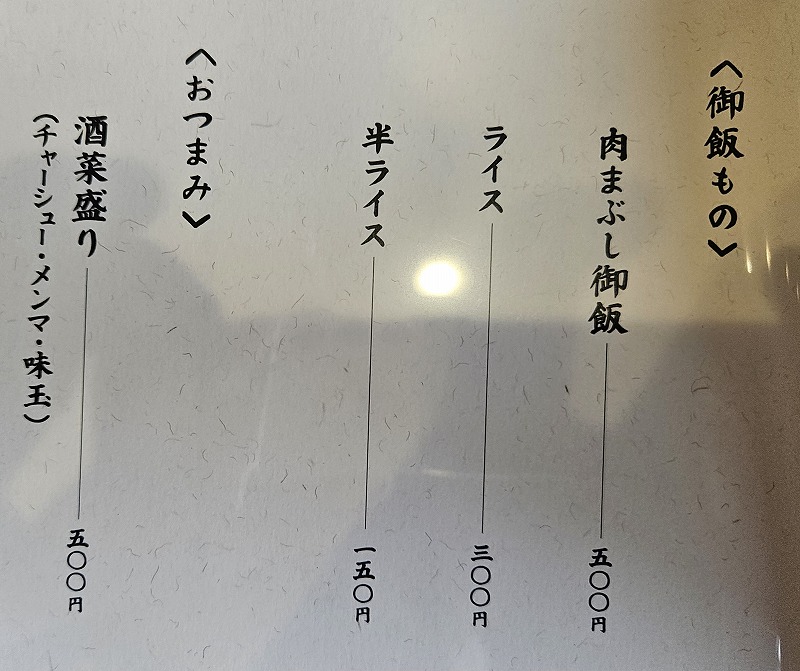 〈御飯もの〉
肉まぶし御飯 五〇〇円
ライス 三〇〇円
半ライス 一五〇円
〈おつまみ〉
酒菜盛り 五〇〇円
（チャーシュー・メンマ・味玉）